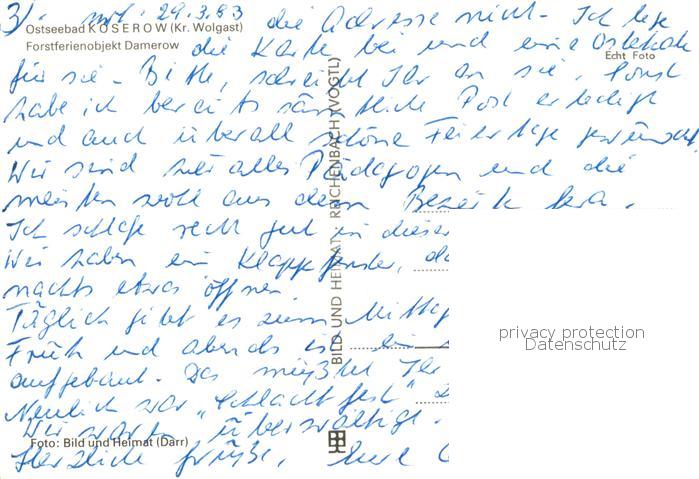 3) 29.3.83 die Adresse nicht. Ich lege
Ostseebad KOSEROW (Kr. Wolgast)
Forstferienobjekt Damerow
Echt Foto
die Karte bei und eine Osterkarte
für sie. Bitte, schreibt Ihr an sie, sonst
habe ich bereits sämtliche Post erledigt
und auch überall schöne Feiertage gewünscht.
Wir sind hier alles Pädagogen und die
meisten wohl aus dem Bezirk
Ich schlafe recht gut in dieser
Wir haben ein Klappfenster, da
nachts etwas öffnen
Täglich gibt es zum Mittag
Früh und abends ist ein
aufgebaut. Das müßtet Ihr
Neulich war „Schlachtfest"
Wir waren überwältigt.
Herzliche Grüße, Eure
Foto: Bild und Heimat (Darr)
BILD UND HEIMAT REICHENBACH (VOGTL)
privacy protection
Datenschutz